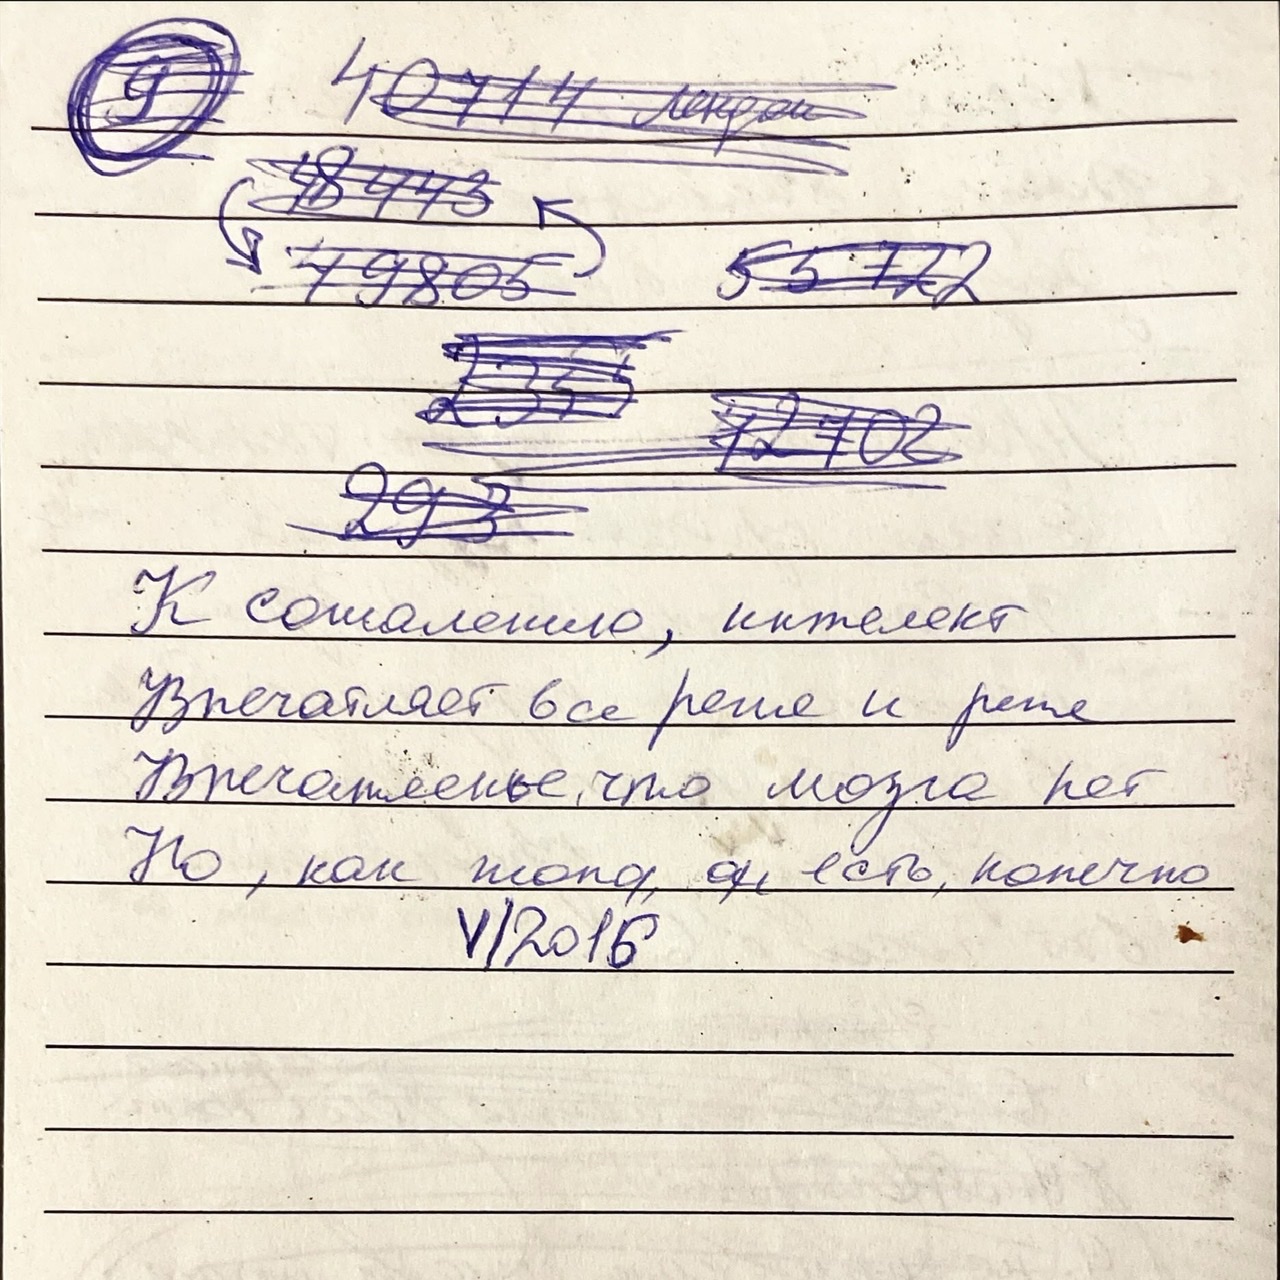 9 40714 Лондон
48443
49805 55 722
2355
42702
293
К сожалению, интелект
Впечатляет все реже и реже
Впечатленье, что мозга нет
Но, как жопа, он есть, конечно
V/2016